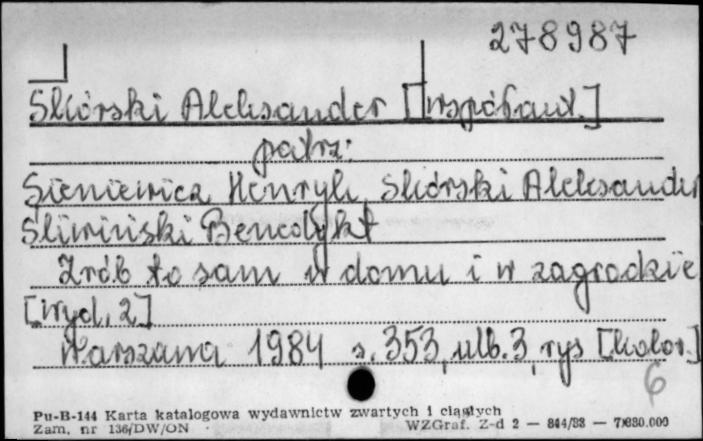 278987
Skórski Aleksander [współaut.]
patrz:
Sieniewicz Henryk, Skórski Aleksander
Śliwiński Benedykt
Zrób to sam w domu i w zagrodzie
[wyd. 2]
Warszawa 1984 s. 353, nlb. 3, rys [kolor.]
6
Pu-B-144 Karta katalogowa wydawnictw zwartych i ciągłych
Zam. nr 136/DW/ON WZGraf. Z-d 2 — 844/83 — 7.680.000